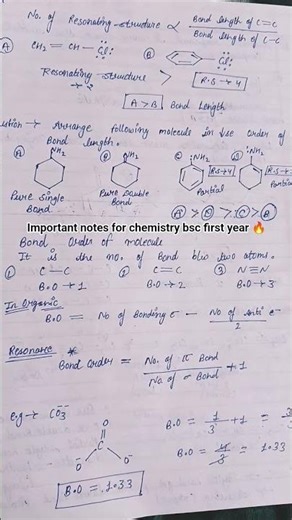 No. of Resonating structure ∝ Bond length of C=C / Bond length of C-C
(A) CH₂ = CH - Cl: (B) Cl:
Resonating structure > R.S → 4
A > B Bond Length
Arrange following molecule in order of
Bond length.
(A) NH₂ (B) NH₂ (C) NH₂ (D) NH₂
R.S→4 R.S→
Pure Single Bond Pure Double Bond Partial Partial
A > > > B
Important notes for chemistry bsc first year 🔥
Bond Order of molecule
It is the no. of Bond b/w two atoms.
① C - C ② C = C ③ N ≡ N
B.O → 1 B.O → 2 B.O → 3
In Organic
B.O = No of Bonding e⁻ - No of anti e⁻ / 2
Resonance *
Bond order = No. of π Bond / No. of σ Bond + 1
e.g → CO₃⁻⁻ B.O = 1/3 + 1 =
O
C
O⁻ O⁻
B.O = 4/3 = 1.33
B.O = 1.33